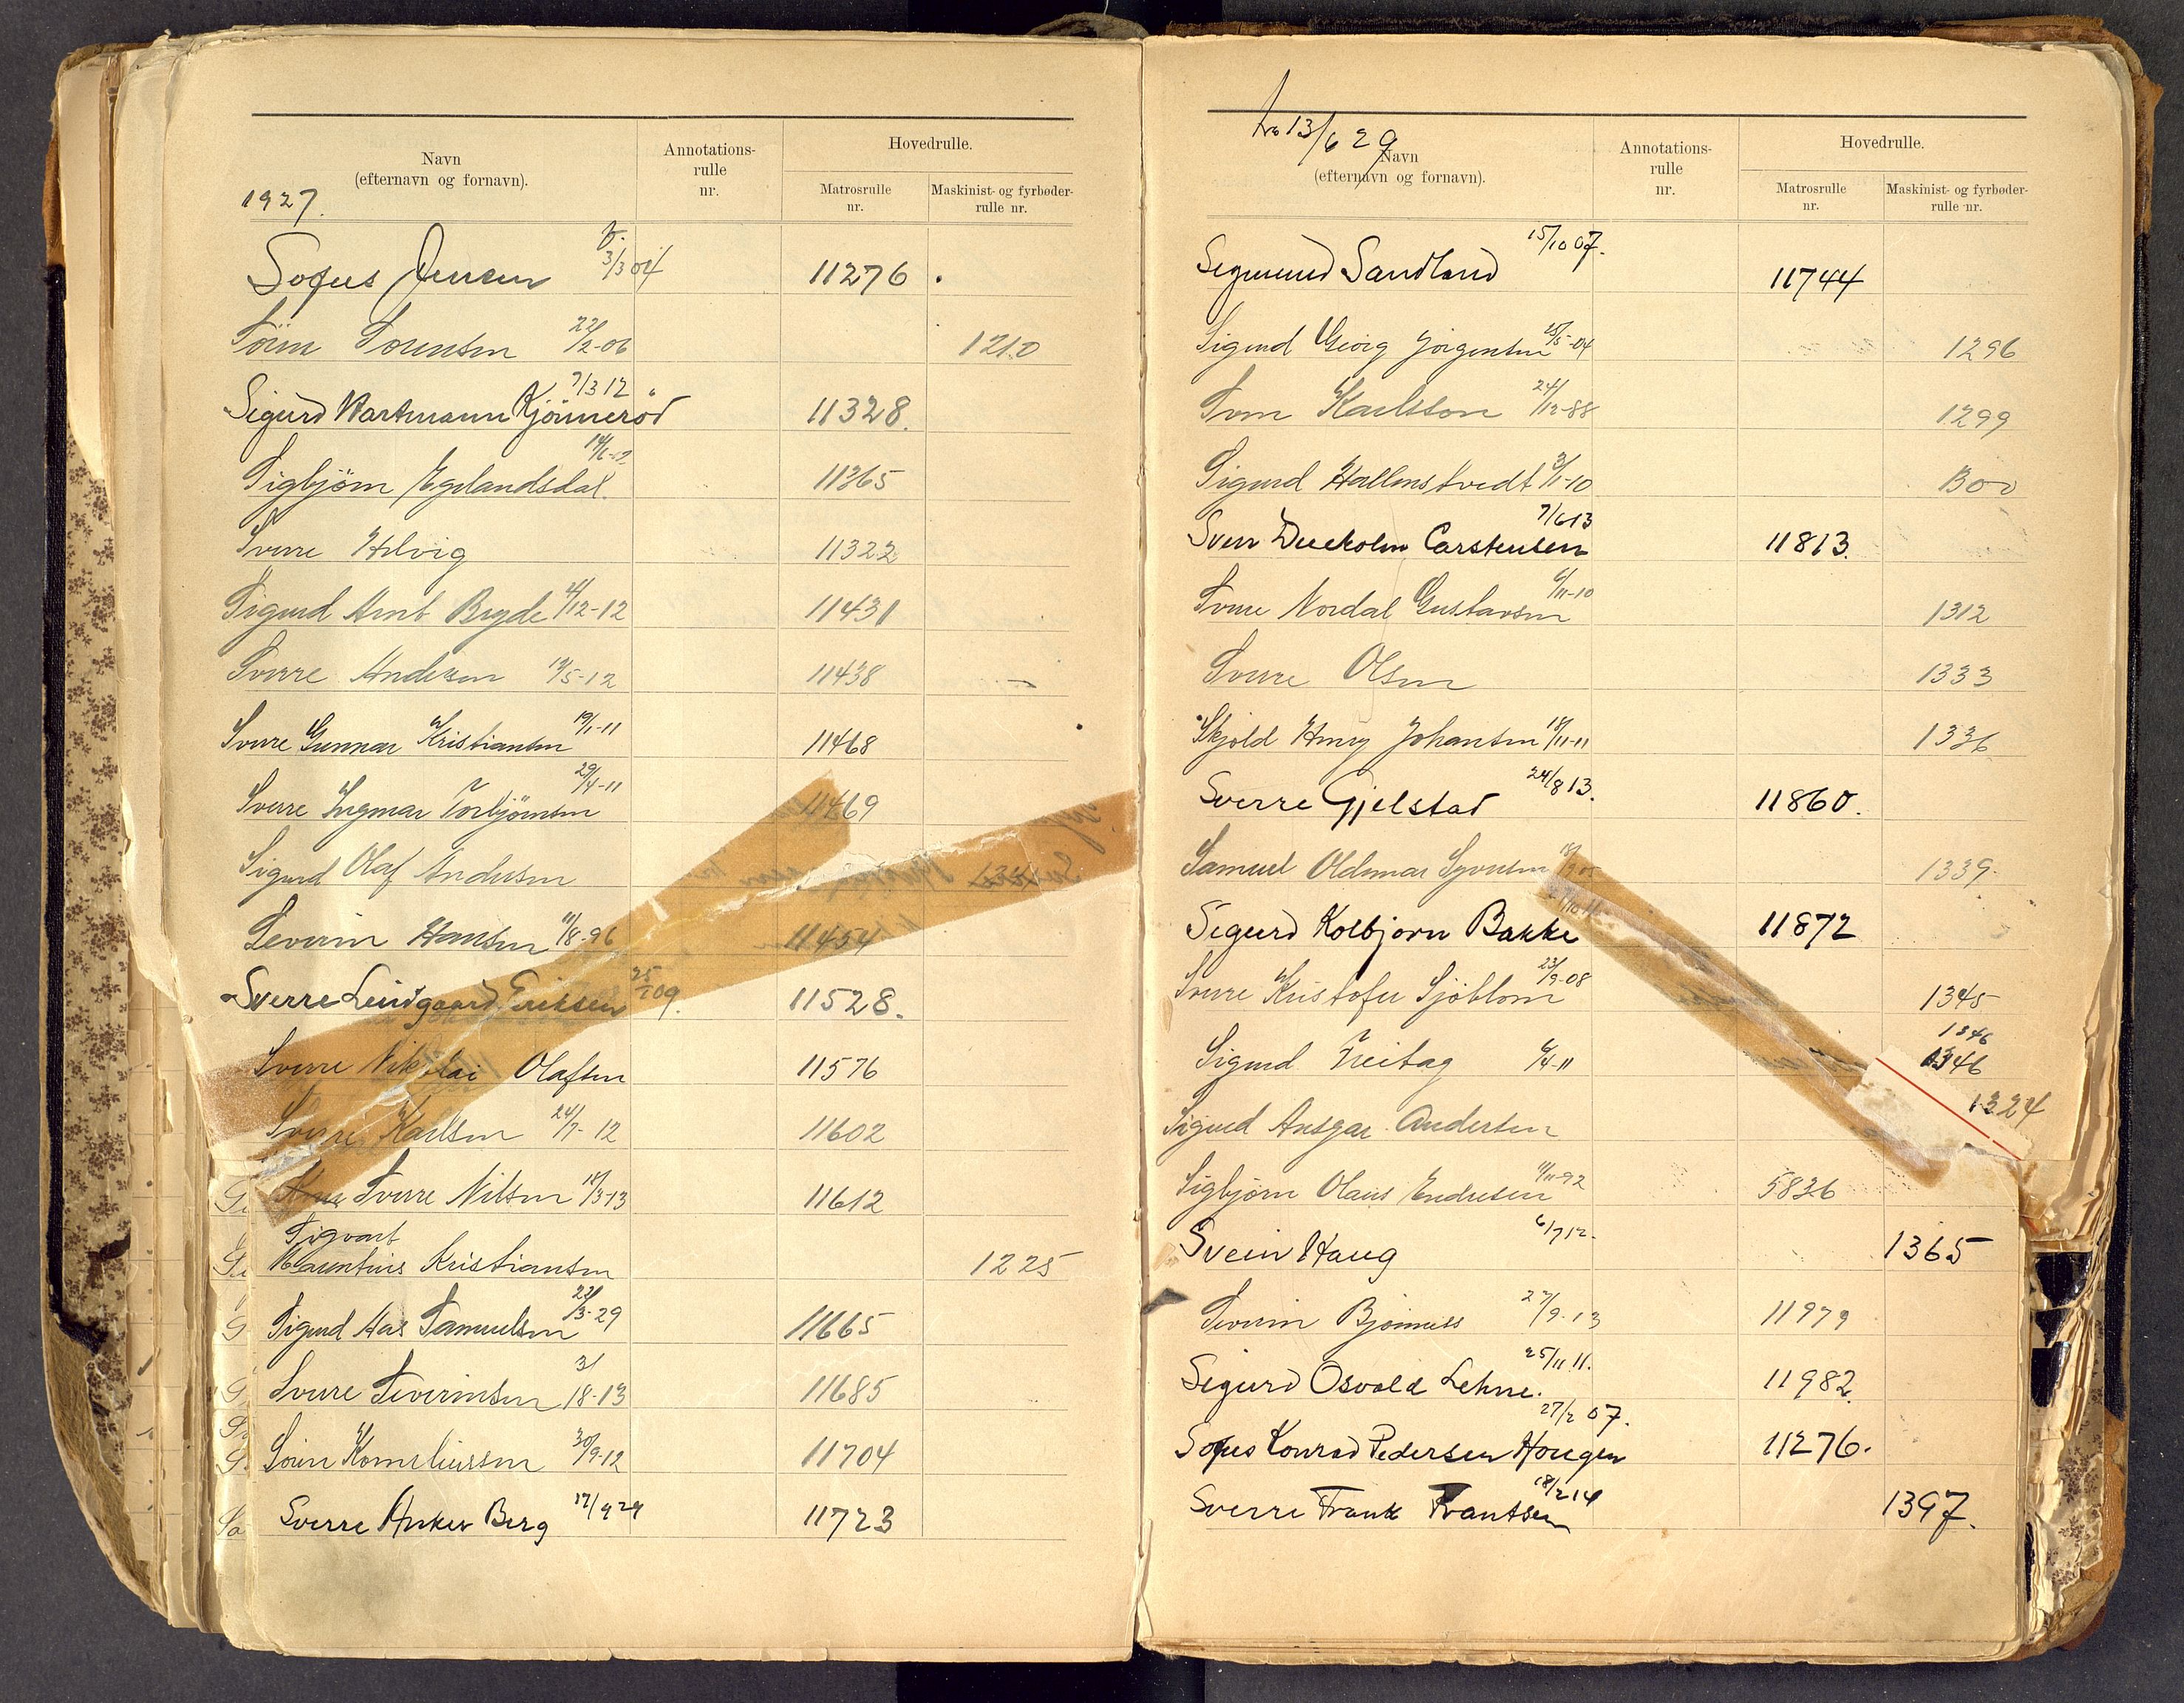 Navn
(efternavn og fornavn).
Annotations-
rulle
nr.
Hovedrulle.
Matrosrulle
nr.
Maskinist- og fyrbøder-
rulle nr.
1927.
Sofus Jensen 3/3 04 11276
Sören Sørensen 22/2-06 1210
Sigurd Martmann Kjønnerød 7/3 12 11328.
Sigbjörn Egelandsdal. 11365
Sverre Helvig 11322
Sigurd Arnt Bryde 4/12-12 11431
Sverre Andersen 13/5-12 11438
Sverre Gunnar Kristiansen 19/1-11 11468
Sverre Ingmar Torbjörnsen 29/4-11 11469
Sigurd Olaf Andersen
Severin Hansen 11/8-96 11454
Sverre Lindgaard Eriksen 25/1 09. 11528.
Sverre Nikolai Olafsen 11576
Sverre Karlsen 24/7-12 11602
Sverre Nilsen 18/3-13 11612
Sigvart
Marentius Kristiansen 1225
Sigurd Aas Samuelsen 22/3-29 11665
Sverre Severinsen 31 18-13 11685
Sören Korneliussen 30/9-12 11704
Sverre Anker Berg 17/9 29 11723
13/6 29
Navn
(efternavn og fornavn).
Annotations-
rulle
nr.
Hovedrulle.
Matrosrulle
nr.
Maskinist- og fyrbøder-
rulle nr.
Sigmund Sandland 15/10 07. 11744
Sigurd Georg Jörgensen 25/5-04 1296
Sven Karlsson 24/12-88 1299
Sigurd Hallenstvedt 3/1-10 1300
Sven Carstensen 7/6 13 11813.
Sverre Nordal Gustavsen 6/11-10 1312
Sverre Olsen 1333
Skjold Henry Johansen 18/11-11 1336
Sverre Gjelstad 24/8 13. 11860.
Samuel Oldemar Syvertsen 1339.
Sigurd Kolbjørn Bakke 11872
Sverre Kristofer Sjöblom 23/9-08 1345
1346
Sigurd Freitag 6/4-11 1346
1324
Sigurd Ansgar Andersen
Sigbjörn Olaus Endresen 11/11-92 5836
Svein Haug 6/7 12. 1365
Severin Bjönness 27/9-13 11979
Sigurd Osvald Lehne. 25/11 11. 11982
Sofus Konrad Pedersen Hougen 27/2 07. 11276.
Sverre Frank Frantsen 18/2 14 1397.